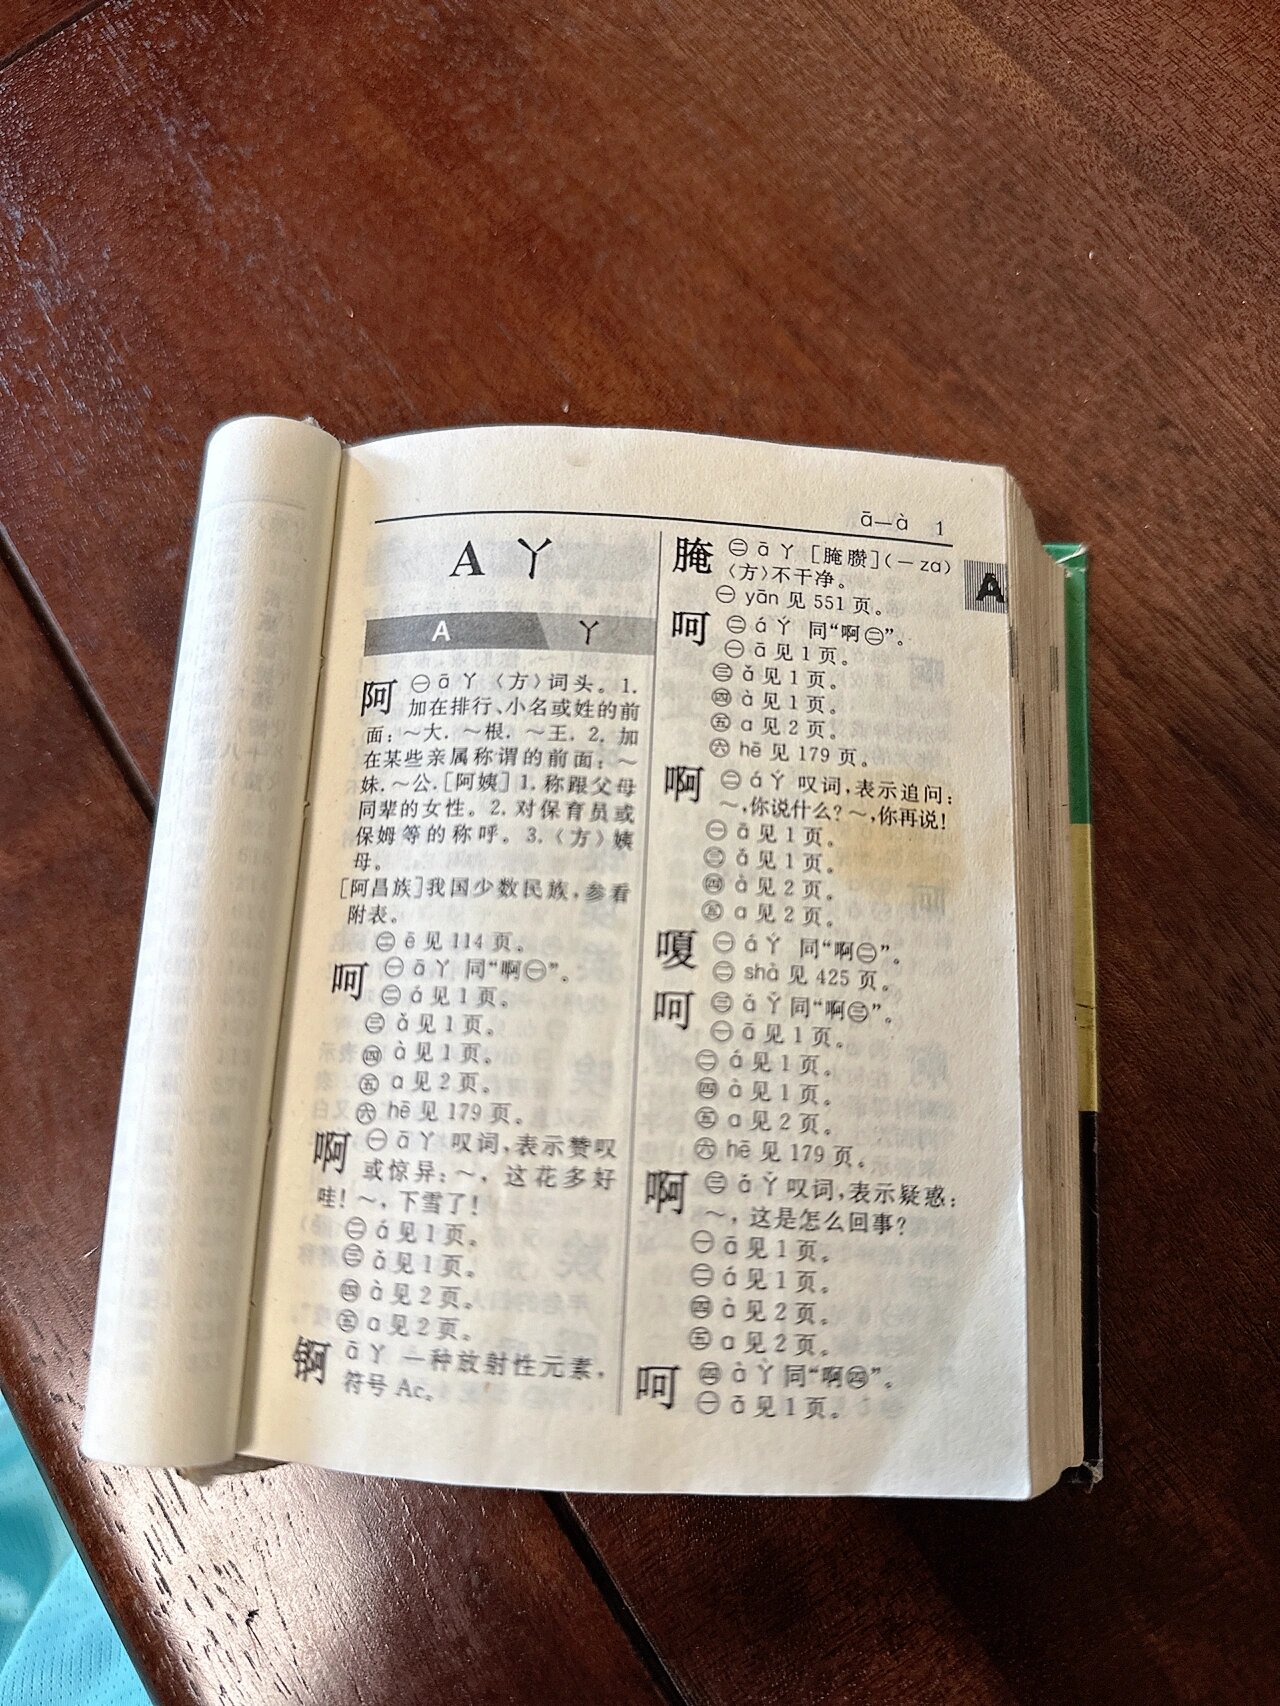 ā—à 1
A ㄚ
A ㄚ
A
阿 ㊀ā ㄚ 〈方〉词头。1.
加在排行、小名或姓的前
面：～大. ～根. ～王. 2. 加
在某些亲属称谓的前面：～
妹. ～公. [阿姨] 1. 称跟父母
同辈的女性。2. 对保育员或
保姆等的称呼。3.〈方〉姨
母。
[阿昌族]我国少数民族，参看
附表。
㊁ ē 见 114 页。
呵 ㊀ ā ㄚ 同“啊㊀”。
㊁ á 见 1 页。
㊂ ǎ 见 1 页。
㊃ à 见 1 页。
㊄ a 见 2 页。
㊅ hē 见 179 页。
啊 ㊀ ā ㄚ 叹词，表示赞叹
或惊异：～，这花多好
哇！～，下雪了！
㊁ á 见 1 页。
㊂ ǎ 见 1 页。
㊃ à 见 2 页。
㊄ a 见 2 页。
锕 ā ㄚ 一种放射性元素，
符号 Ac。
腌 ㊁ ā ㄚ [腌臜](－za)
〈方〉不干净。
㊀ yān 见 551 页。
呵 ㊁ á ㄚˊ 同“啊㊁”。
㊀ ā 见 1 页。
㊂ ǎ 见 1 页。
㊃ à 见 1 页。
㊄ a 见 2 页。
㊅ hē 见 179 页。
啊 ㊁ á ㄚˊ 叹词，表示追问：
～，你说什么？～，你再说！
㊀ ā 见 1 页。
㊂ ǎ 见 1 页。
㊃ à 见 2 页。
㊄ a 见 2 页。
嗄 ㊀ á ㄚˊ 同“啊㊁”。
㊁ shà 见 425 页。
呵 ㊂ ǎ ㄚˇ 同“啊㊂”。
㊀ ā 见 1 页。
㊁ á 见 1 页。
㊃ à 见 1 页。
㊄ a 见 2 页。
㊅ hē 见 179 页。
啊 ㊂ ǎ ㄚˇ 叹词，表示疑惑：
～，这是怎么回事？
㊀ ā 见 1 页。
㊁ á 见 1 页。
㊃ à 见 2 页。
㊄ a 见 2 页。
呵 ㊃ à ㄚˋ 同“啊㊃”。
㊀ ā 见 1 页。